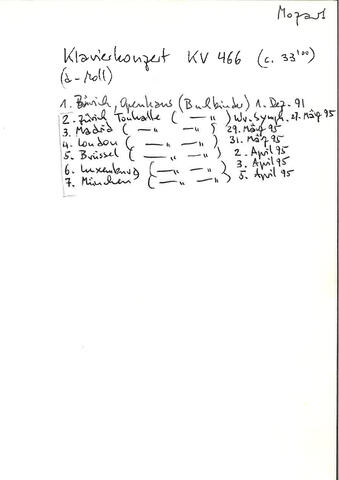 Mozart
Klavierkonzert KV 466 (c. 33'00)
(d-Moll)
1. Zürich, Opernhaus (Buchbinder) 1. Dez. 91
2. Zürich Tonhalle ( — " ) Wr. Symph. 27. März 95
3. Madrid ( — " — " ) 29. März 95
4. London ( — " — " ) 31. März 95
5. Brüssel ( — " — " ) 2. April 95
6. Luxemburg ( — " — " ) 3. April 95
7. München ( — " — " ) 5. April 95